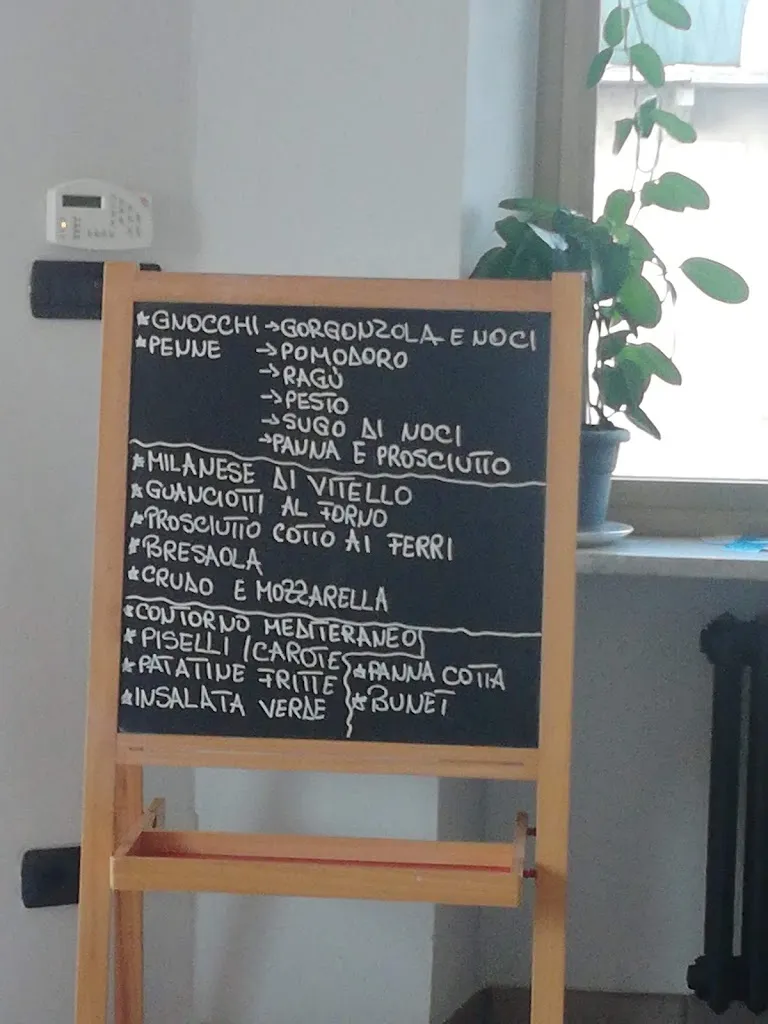 *GNOCCHI →GORGONZOLA E NOCI
*PENNE →POMODORO
→RAGÙ
→PESTO
→SUGO DI NOCI
→PANNA E PROSCIUTTO
*MILANESE DI VITELLO
*GUANCIOTTI AL FORNO
*PROSCIUTTO COTTO AI FERRI
*BRESAOLA
*CRUDO E MOZZARELLA
*CONTORNO MEDITERANEO
*PISELLI /CAROTE
*PATATINE FRITTE
*INSALATA VERDE
*PANNA COTTA
*BUNET